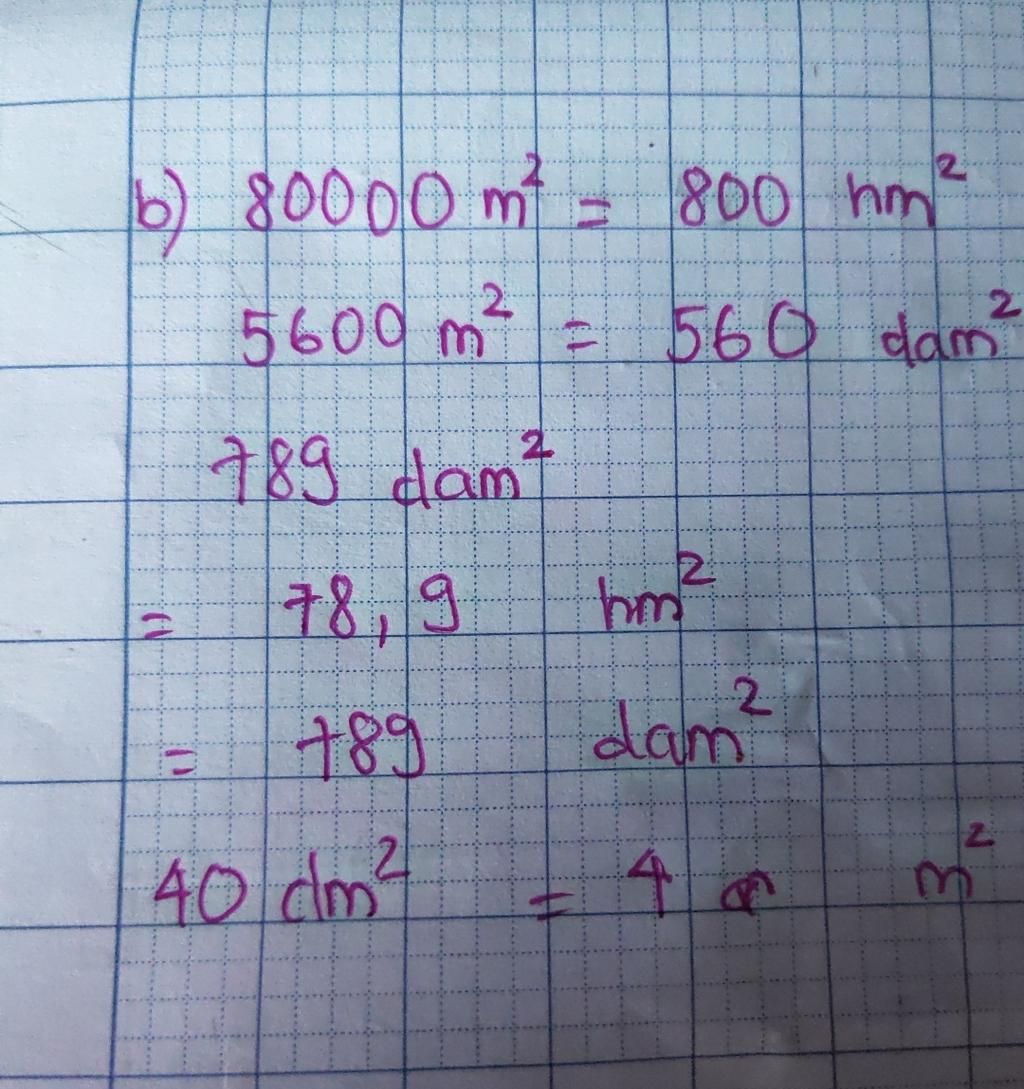 b) 80000 m² = 800 hm²
5600 m² = 560 dam²
789 dam²
= 78,9 hm²
= 789 dam²
40 dm² = 4 m²